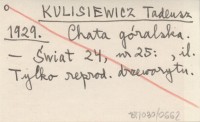 KULISIEWICZ Tadeusz
1929. Chata góralska.
— Świat 24, nr 25: , il.
Tylko reprod. drzeworytu.